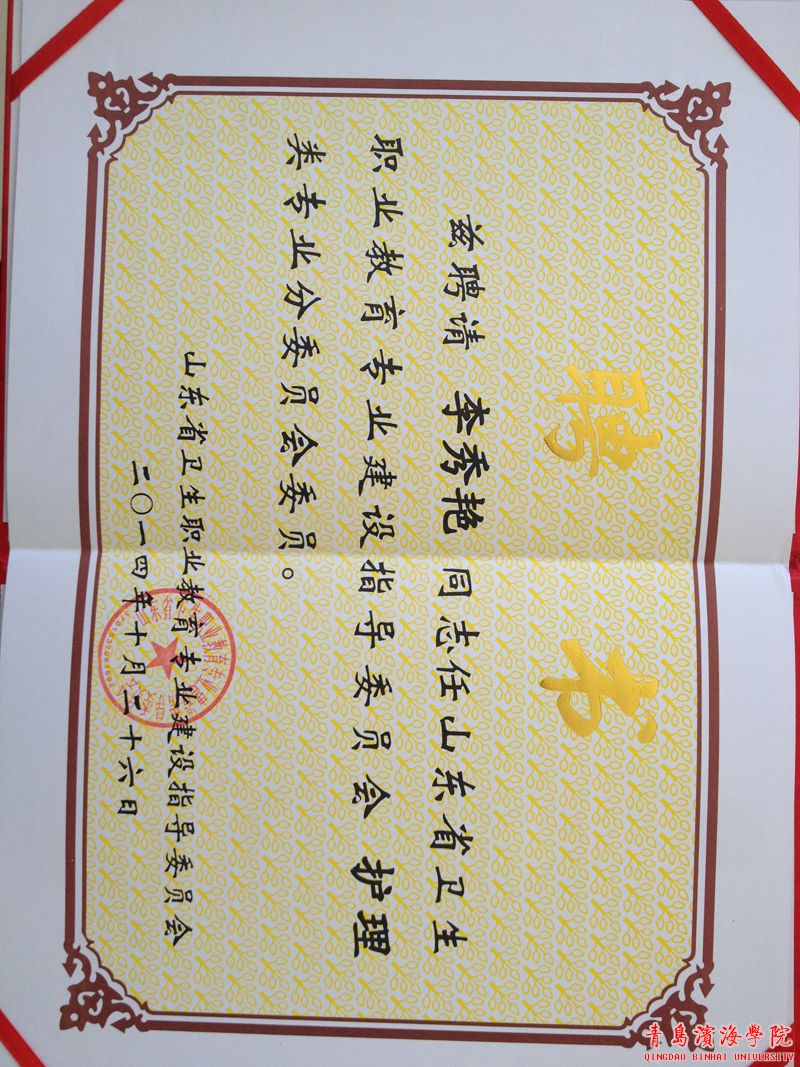 聘书
兹聘请 李秀艳 同志任山东省卫生
职业教育专业建设指导委员会 护理
类专业分委员会委员。
山东省卫生职业教育专业建设指导委员会
二〇一四年十月二十六日
青島濱海學院
QINGDAO BINHAI UNIVERSITY